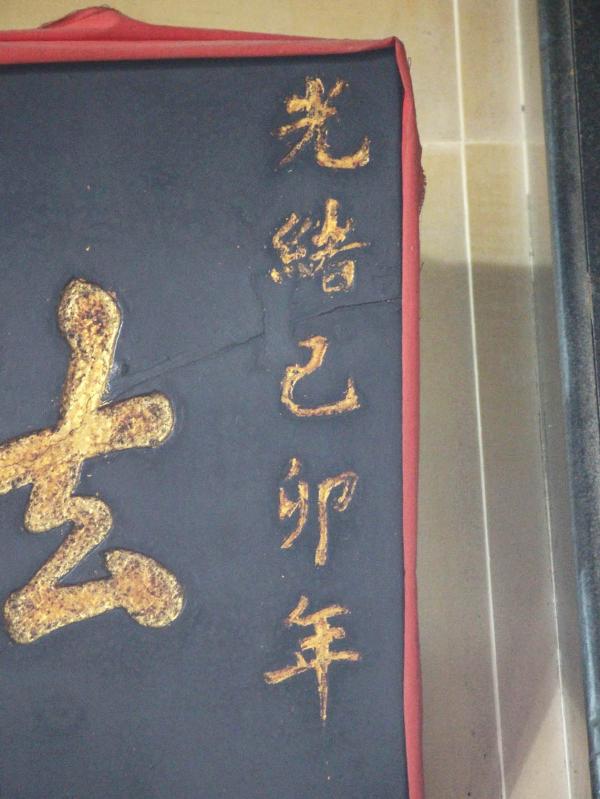 光緒己卯年